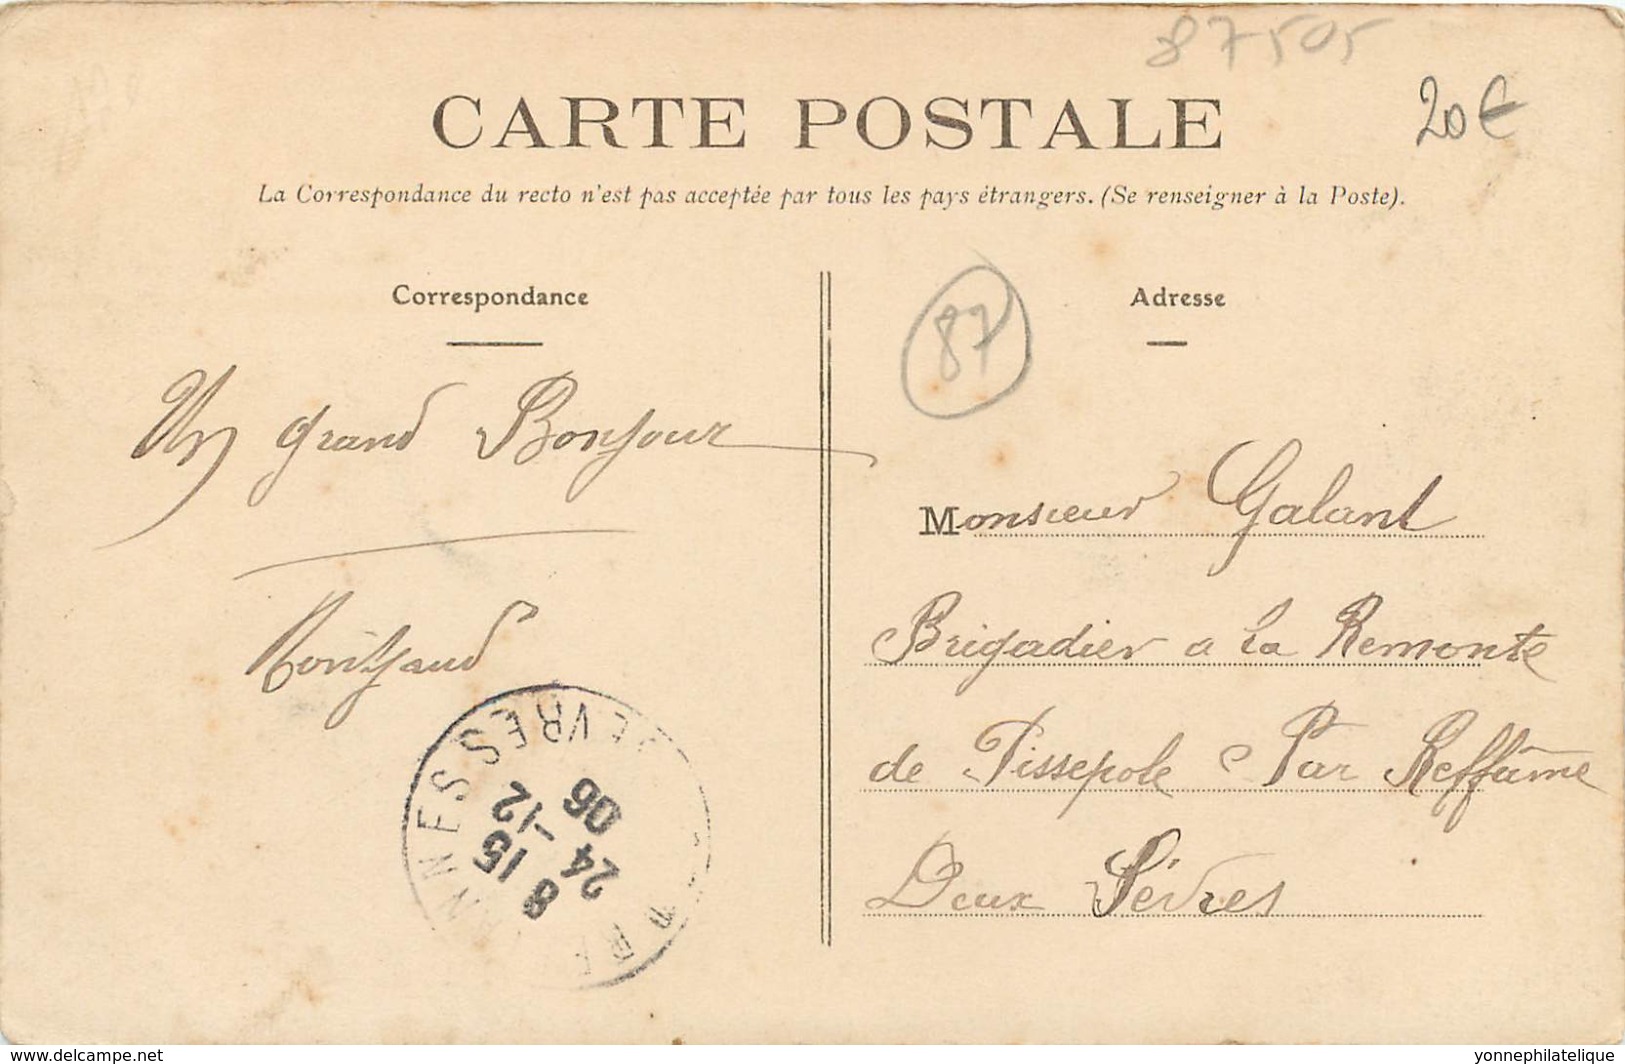 87505
CARTE POSTALE
20€
La Correspondance du recto n'est pas acceptée par tous les pays étrangers. (Se renseigner à la Poste).
Correspondance
Un grand Bonjour
87
Adresse
Monsieur Galant
Brigadier a la Remonte
de Pissepole Par Reffâme
Deux Sèvres
SEVRES
8 15
24 -12
06
www.delcampe.net
yonnephilatelique